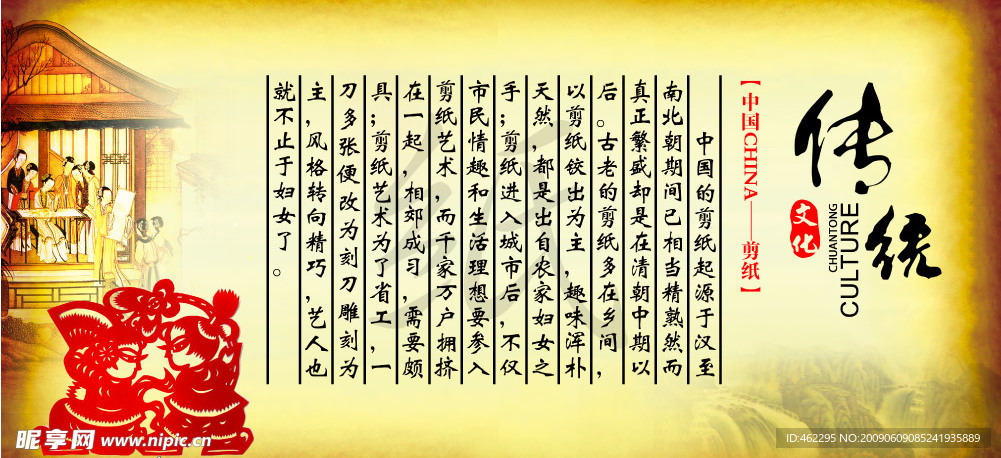 传统
文化
CHUANTONG
CULTURE
【中国CHINA——剪纸】
中国的剪纸起源于汉至
南北朝期间已相当精熟然而
真正繁盛却是在清朝中期以
后。古老的剪纸多在乡间，
以剪纸铰出为主，趣味浑朴
天然，都是出自农家妇女之
手；剪纸进入城市后，不仅
市民情趣和生活理想要参入
剪纸艺术，而千家万户拥挤
在一起，相郊成习，需要颇
具；剪纸艺术为了省工，一
刀多张便改为刻刀雕刻为
主，风格转向精巧，艺人也
就不止于妇女了。
纸
昵享网 www.nipic.cn
ID:462295 NO:20090609085241935889